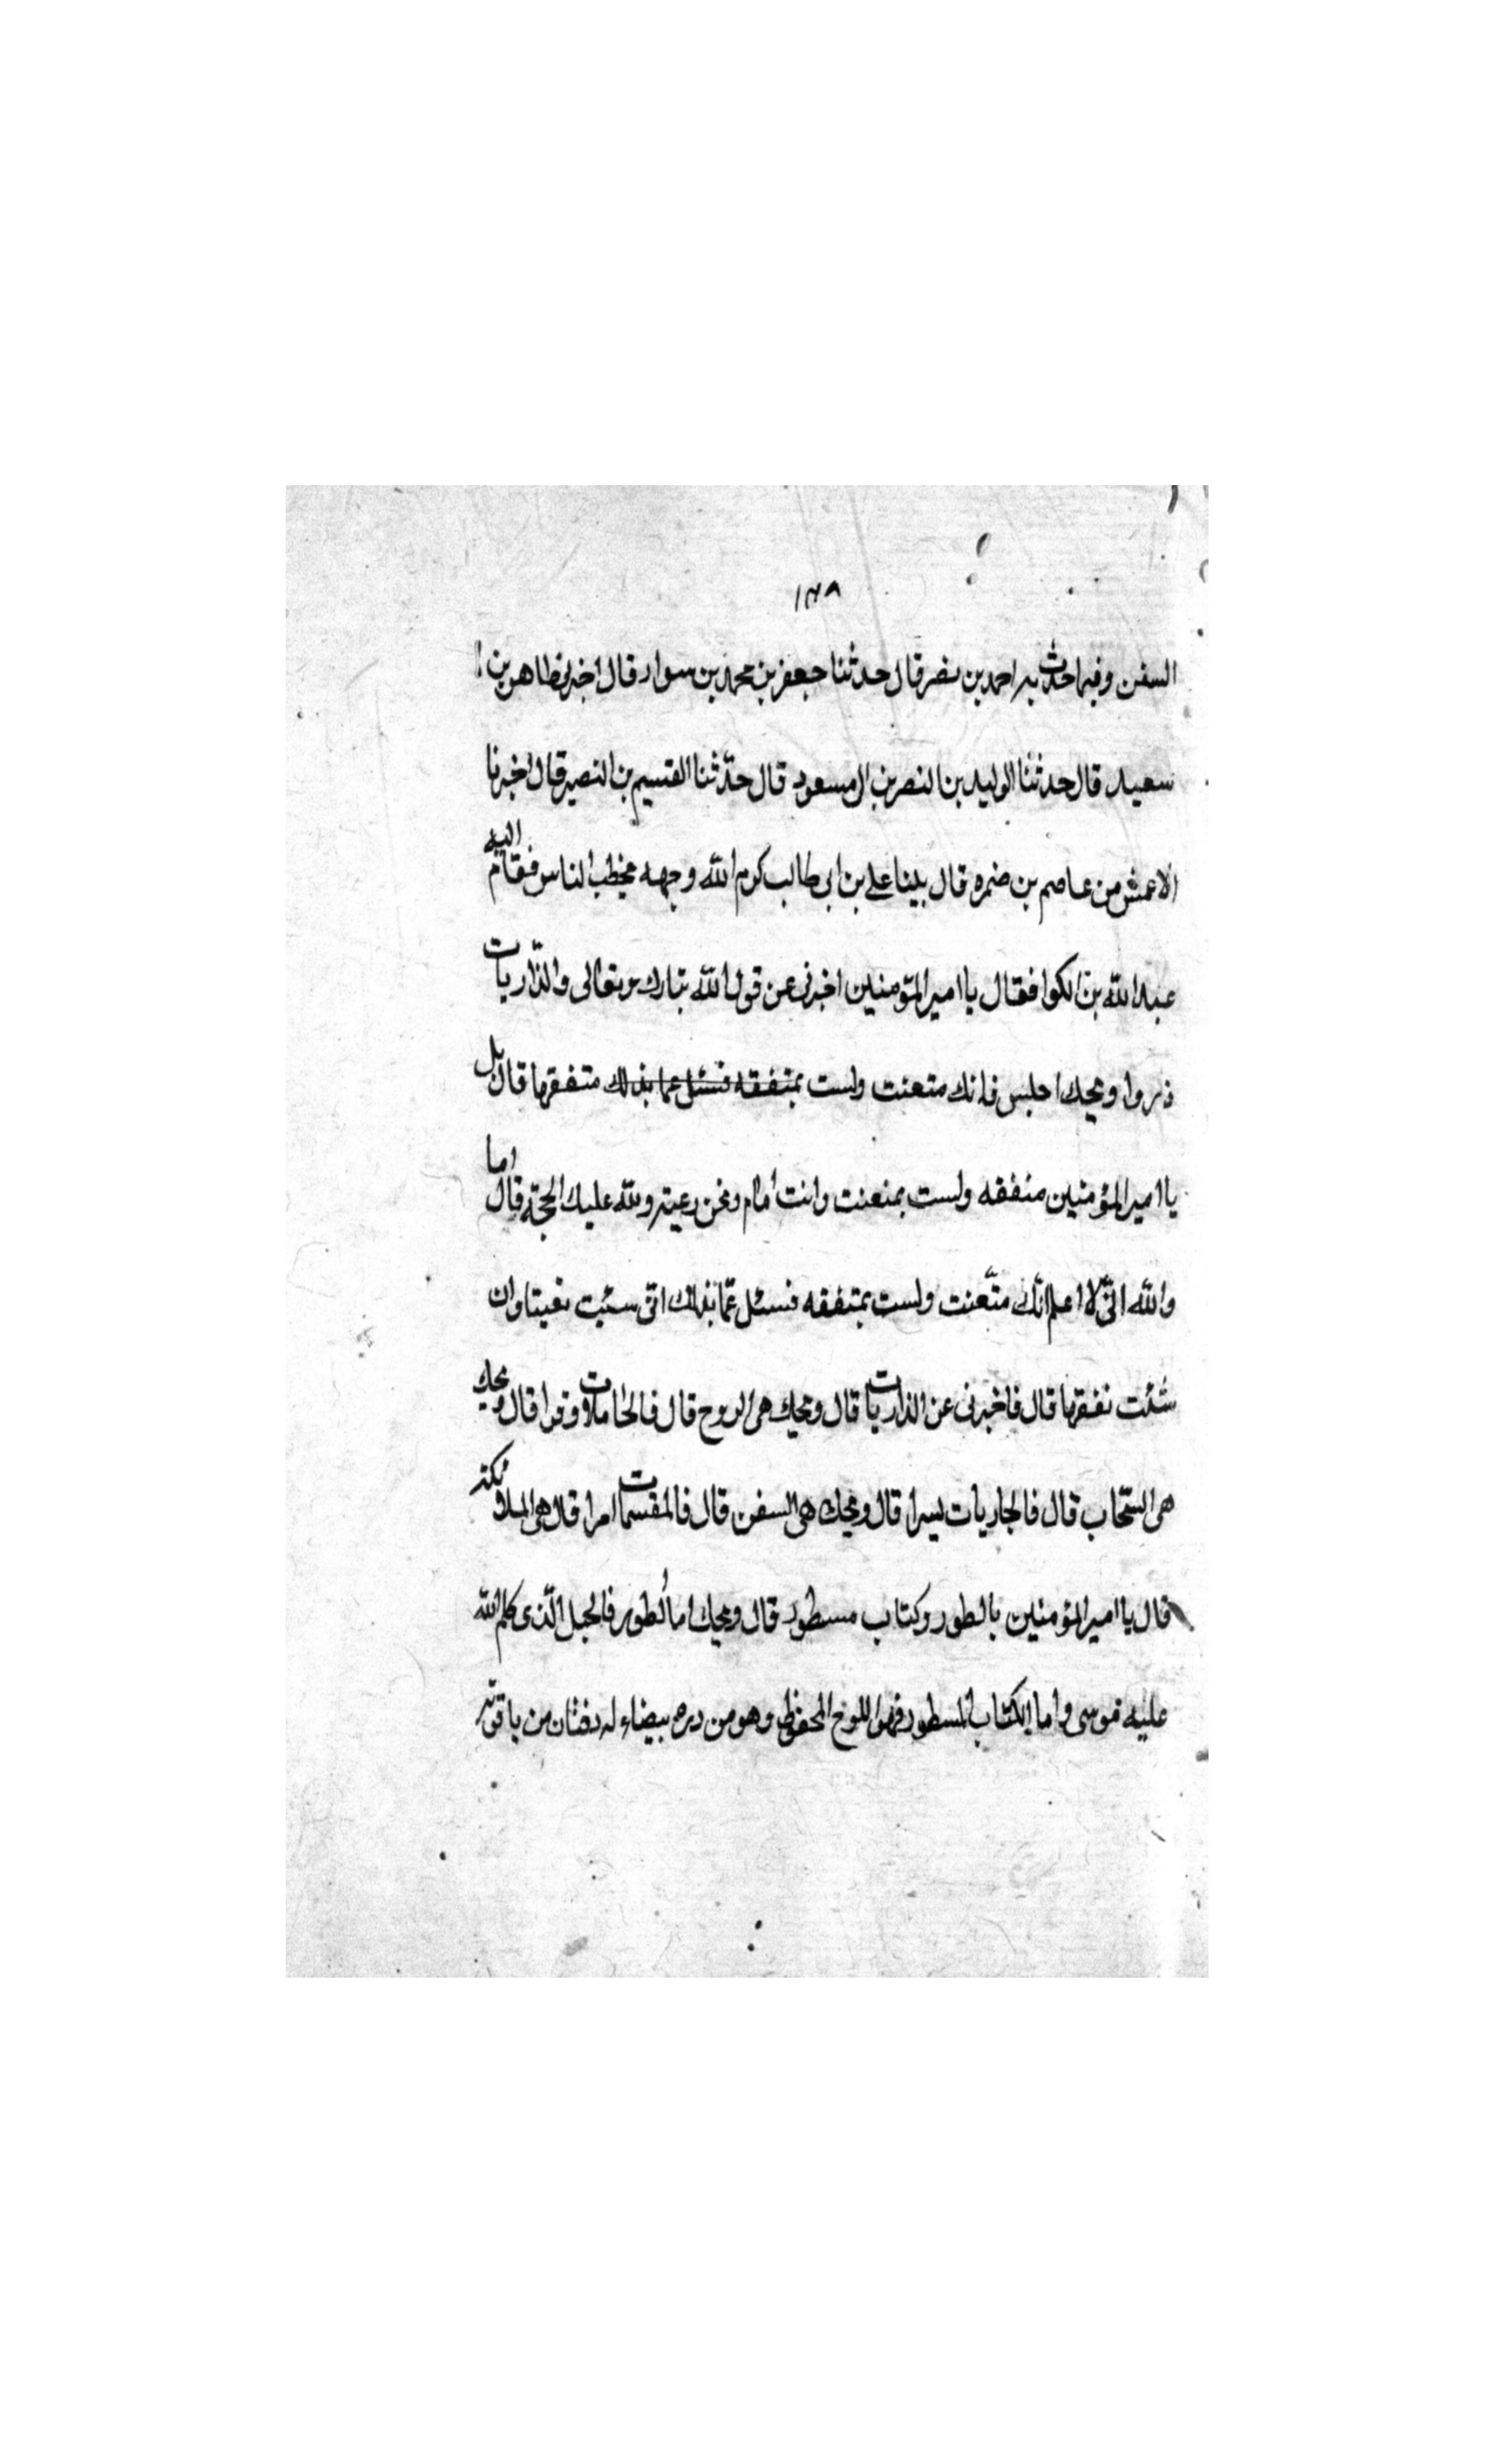 ١٣٨
السفن وفيما حدث به احمد بن نصر قال حدثنا جعفر بن محمد بن سوار قال اخبرنا طاهر بن
سعيد قال حدثنا الوليد بن النصر بن المسعود قال حدّثنا القسيم بن النصير قال اخبرنا
الاعمش من عاصم بن ضمره قال بينا علی بن ابی طالب كرم الله وجهه يخطب الناس فقام اليه
عبد الله بن الكوا فقال يا امير المؤمنين اخبرنی عن قول الله تبارك وتعالی والذّاريات
ذروا ويحك اجلس فانك متعنت ولست بمتفقه فسئل عما بذلك متفقها قال بل
يا امير المؤمنين متفقه ولست بمتعنت وانت امام ونحن رعيته ولله عليك الحجة قال اما
والله انّی لا اعلم انّك متّعنت ولست بمتفقه فسئل عمّا بذلك انّی سئيت تعينا وان
شئت تفقها قال فاخبرنی عن الذاريات قال ويحك هی الروح قال فالحاملات وقرا قال ويحك
هی السّحاب قال فالجاريات يسرا قال ويحك هی السفن قال فالمقسمات امرا قال هی الملائكة
قال يا امير المؤمنين بالطور وكتاب مسطور قال ويحك اما الطور فالجبل الّذی كلم الله
عليه موسی واما الكتاب المسطور فهو اللوح المحفوظ وهو من دره بيضاء له دفتان من ياقوته